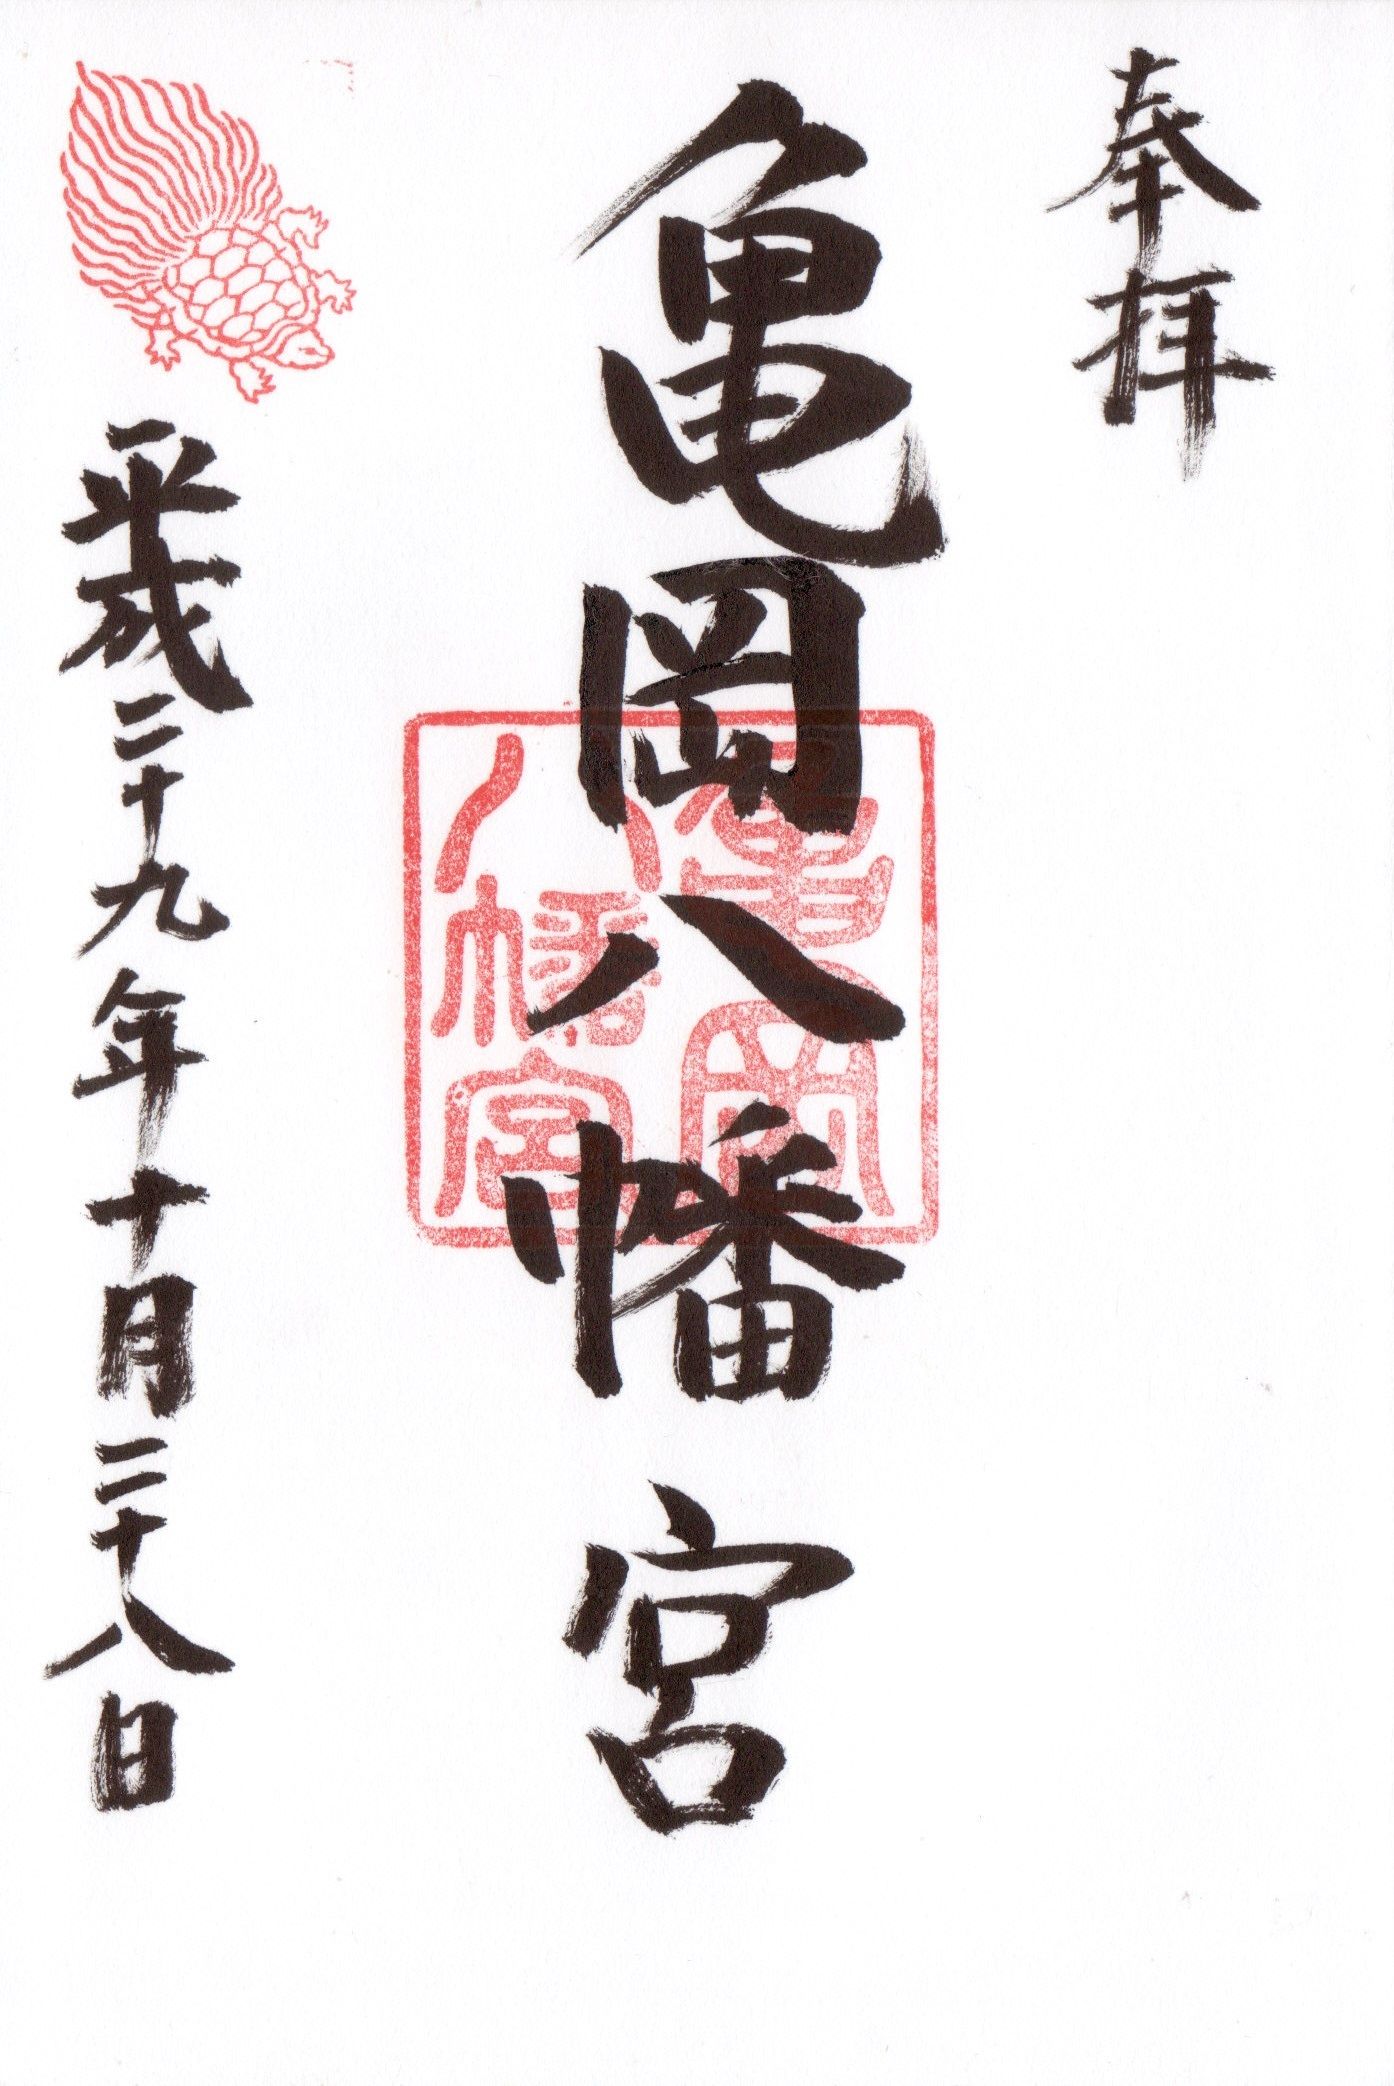 奉拝
亀岡八幡宮
亀岡
八幡宮
平成二十九年十月二十八日